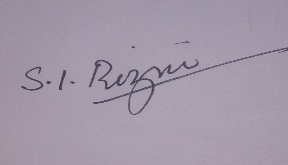 S.I. Rizvi